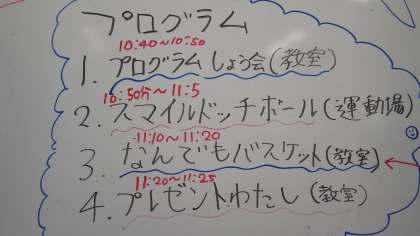 プログラム
10:40~10:50
1. プログラムしょう会(教室)
10:50分~11:5
2. スマイルドッチボール(運動場)
11:10~11:20
3. なんでもバスケット(教室)
11:20~11:25
4. プレゼントわたし(教室)